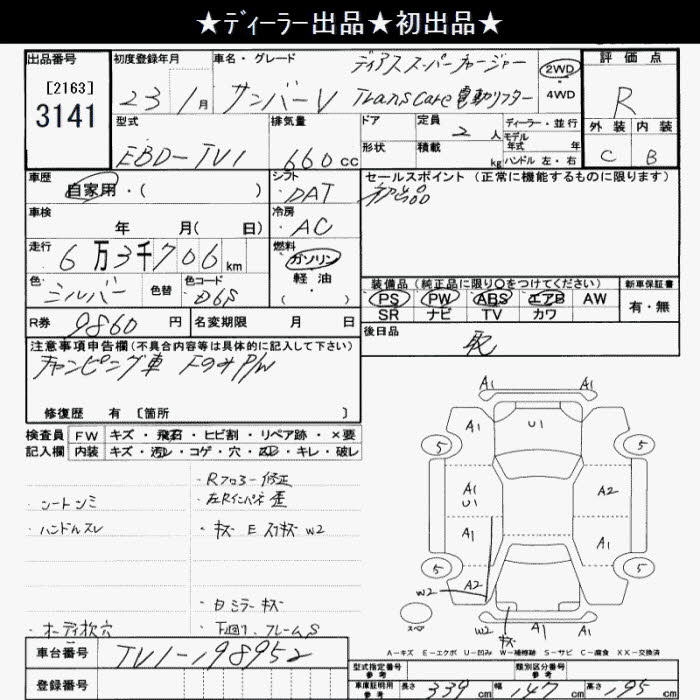 ★ディーラー出品★初出品★
出品番号 初度登録年月 車名・グレード ディアススーパーチャージャー 2WD 評価点
[2163] 23 1月 サンバーV TransCare 電動リフター 4WD R
3141
型式 排気量 ドア 定員 2人 ディーラー・並行 モデル 年式 年 外装 内装
EBD-TV1 660cc 形状 積載 kg ハンドル 左・右 C B
車歴 シフト セールスポイント (正常に機能するものに限ります)
自家用・( ) DAT 初出品
車検 冷房
年 月( 日) AC
走行 燃料
6万3千706km ガソリン
色 色コード 軽油 装備品(純正品に限り〇をつけてください) 新車保証書
シルバー 色替 D6S ・( ) PS PW ABS エアB AW 有・無
SR ナビ TV カワ
R券 9860円 名変期限 月 日 後日品
注意事項申告欄(不具合内容等は具体的に記入して下さい) 取
キャンピング車 FのみP/W
修復歴 有 [箇所 ]
検査員 FW キズ・飛石・ヒビ割・リペア跡・×要
記入欄 内装 キズ・汚レ・コゲ・穴・スレ・キレ・破レ
・Rフロアー修正
・シートシミ ・左Rインパネ歪
・ハンドルスレ ・キズ E スリキズ W2
・ミラーキズ
・オーディオ枕穴 ・下回り、フレームS
A1 A1
A1 U1
5 5
A1 A2
U1
A1 A1
5 5
W2 A2
スペア W2 キズ A1 A1
A-キズ E-エクボ U-凹み W-補修跡 S-サビ C-腐食 XX-交換済
車台番号 TV1-198952
型式指定番号 参考 類別区分番号 参考
登録番号 車庫証明用 参考 長さ 339cm 幅 147cm 高さ 195cm